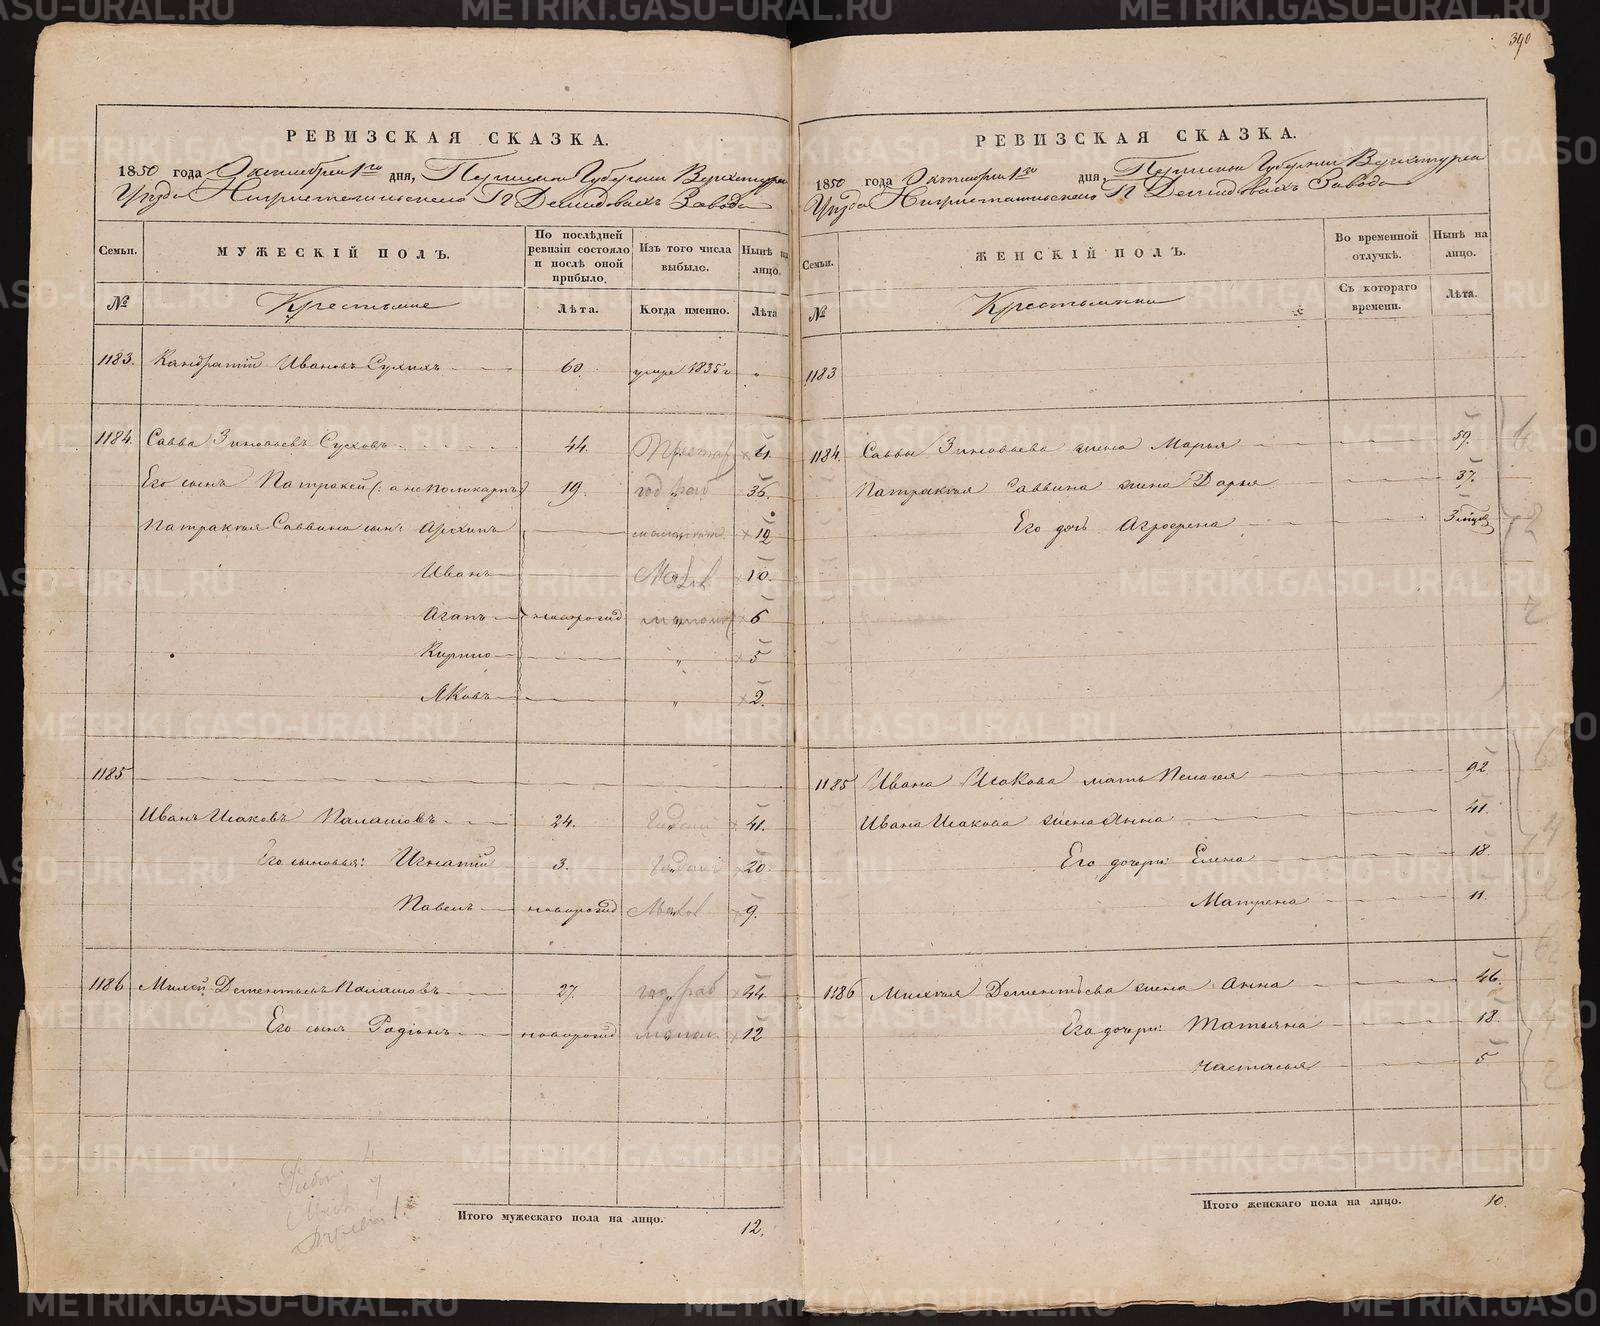 390
РЕВИЗСКАЯ СКАЗКА.
1850 года Октября 1го дня, Пермской Губернии Верхотурск
Уезда Нижнетагильского Гг Демидовыхъ Завода
Семьи. МУЖЕСКІЙ ПОЛЪ. По послѣдней ревизіи состояло и послѣ оной прибыло. Изъ того числа выбыло. Нынѣ на лицо.
№ Крестьяне Лѣта. Когда именно. Лѣта
1183. Кандратій Ивановъ Сухихъ 60. умре 1835 г "
1184. Савва Зиновьевъ Суховъ 44. Престар 61.
Его сынъ Патракей (: а не Поликарпъ:) 19. год раб 36.
Патракея Саввина сынъ Архипъ малолет 19
Иванъ Мал 10.
Агапъ новорожд малол 6
Кирило " 5
Яковъ " 2.
1185
Иванъ Исаковъ Палашовъ 24. Годной 41.
Его сыновья: Игнатій 3. Годной 20.
Павелъ новорожд Мал 9.
1186 Михей Дементьевъ Палашовъ 27. год раб 44.
Его сынъ Радіонъ новорожд малол 12
Итого мужескаго пола на лицо. 12.
РЕВИЗСКАЯ СКАЗКА.
1850 года Октября 1го дня, Пермской Губернии Верхотурск
Уезда Нижнетагильского Гг Демидовыхъ Завода
Семьи. ЖЕНСКІЙ ПОЛЪ. Во временной отлучкѣ. Нынѣ на лицо.
№ Крестьянки Съ котораго времени. Лѣта.
1183
1184. Саввы Зиновьева жена Марья 59.
Патракея Саввина жена Дарья 37.
Его дочь Агрофена 3 мѣсяц
1185 Ивана Исакова мать Пелагея 92.
Ивана Исакова жена Анна 41.
Его дочери: Елена 18.
Матрена 11.
1186 Михея Дементьева жена Анна 46.
Его дочери: Татьяна 18.
Настасья 5
Итого женскаго пола на лицо. 10.
METRIKI.GASO-URAL.RU